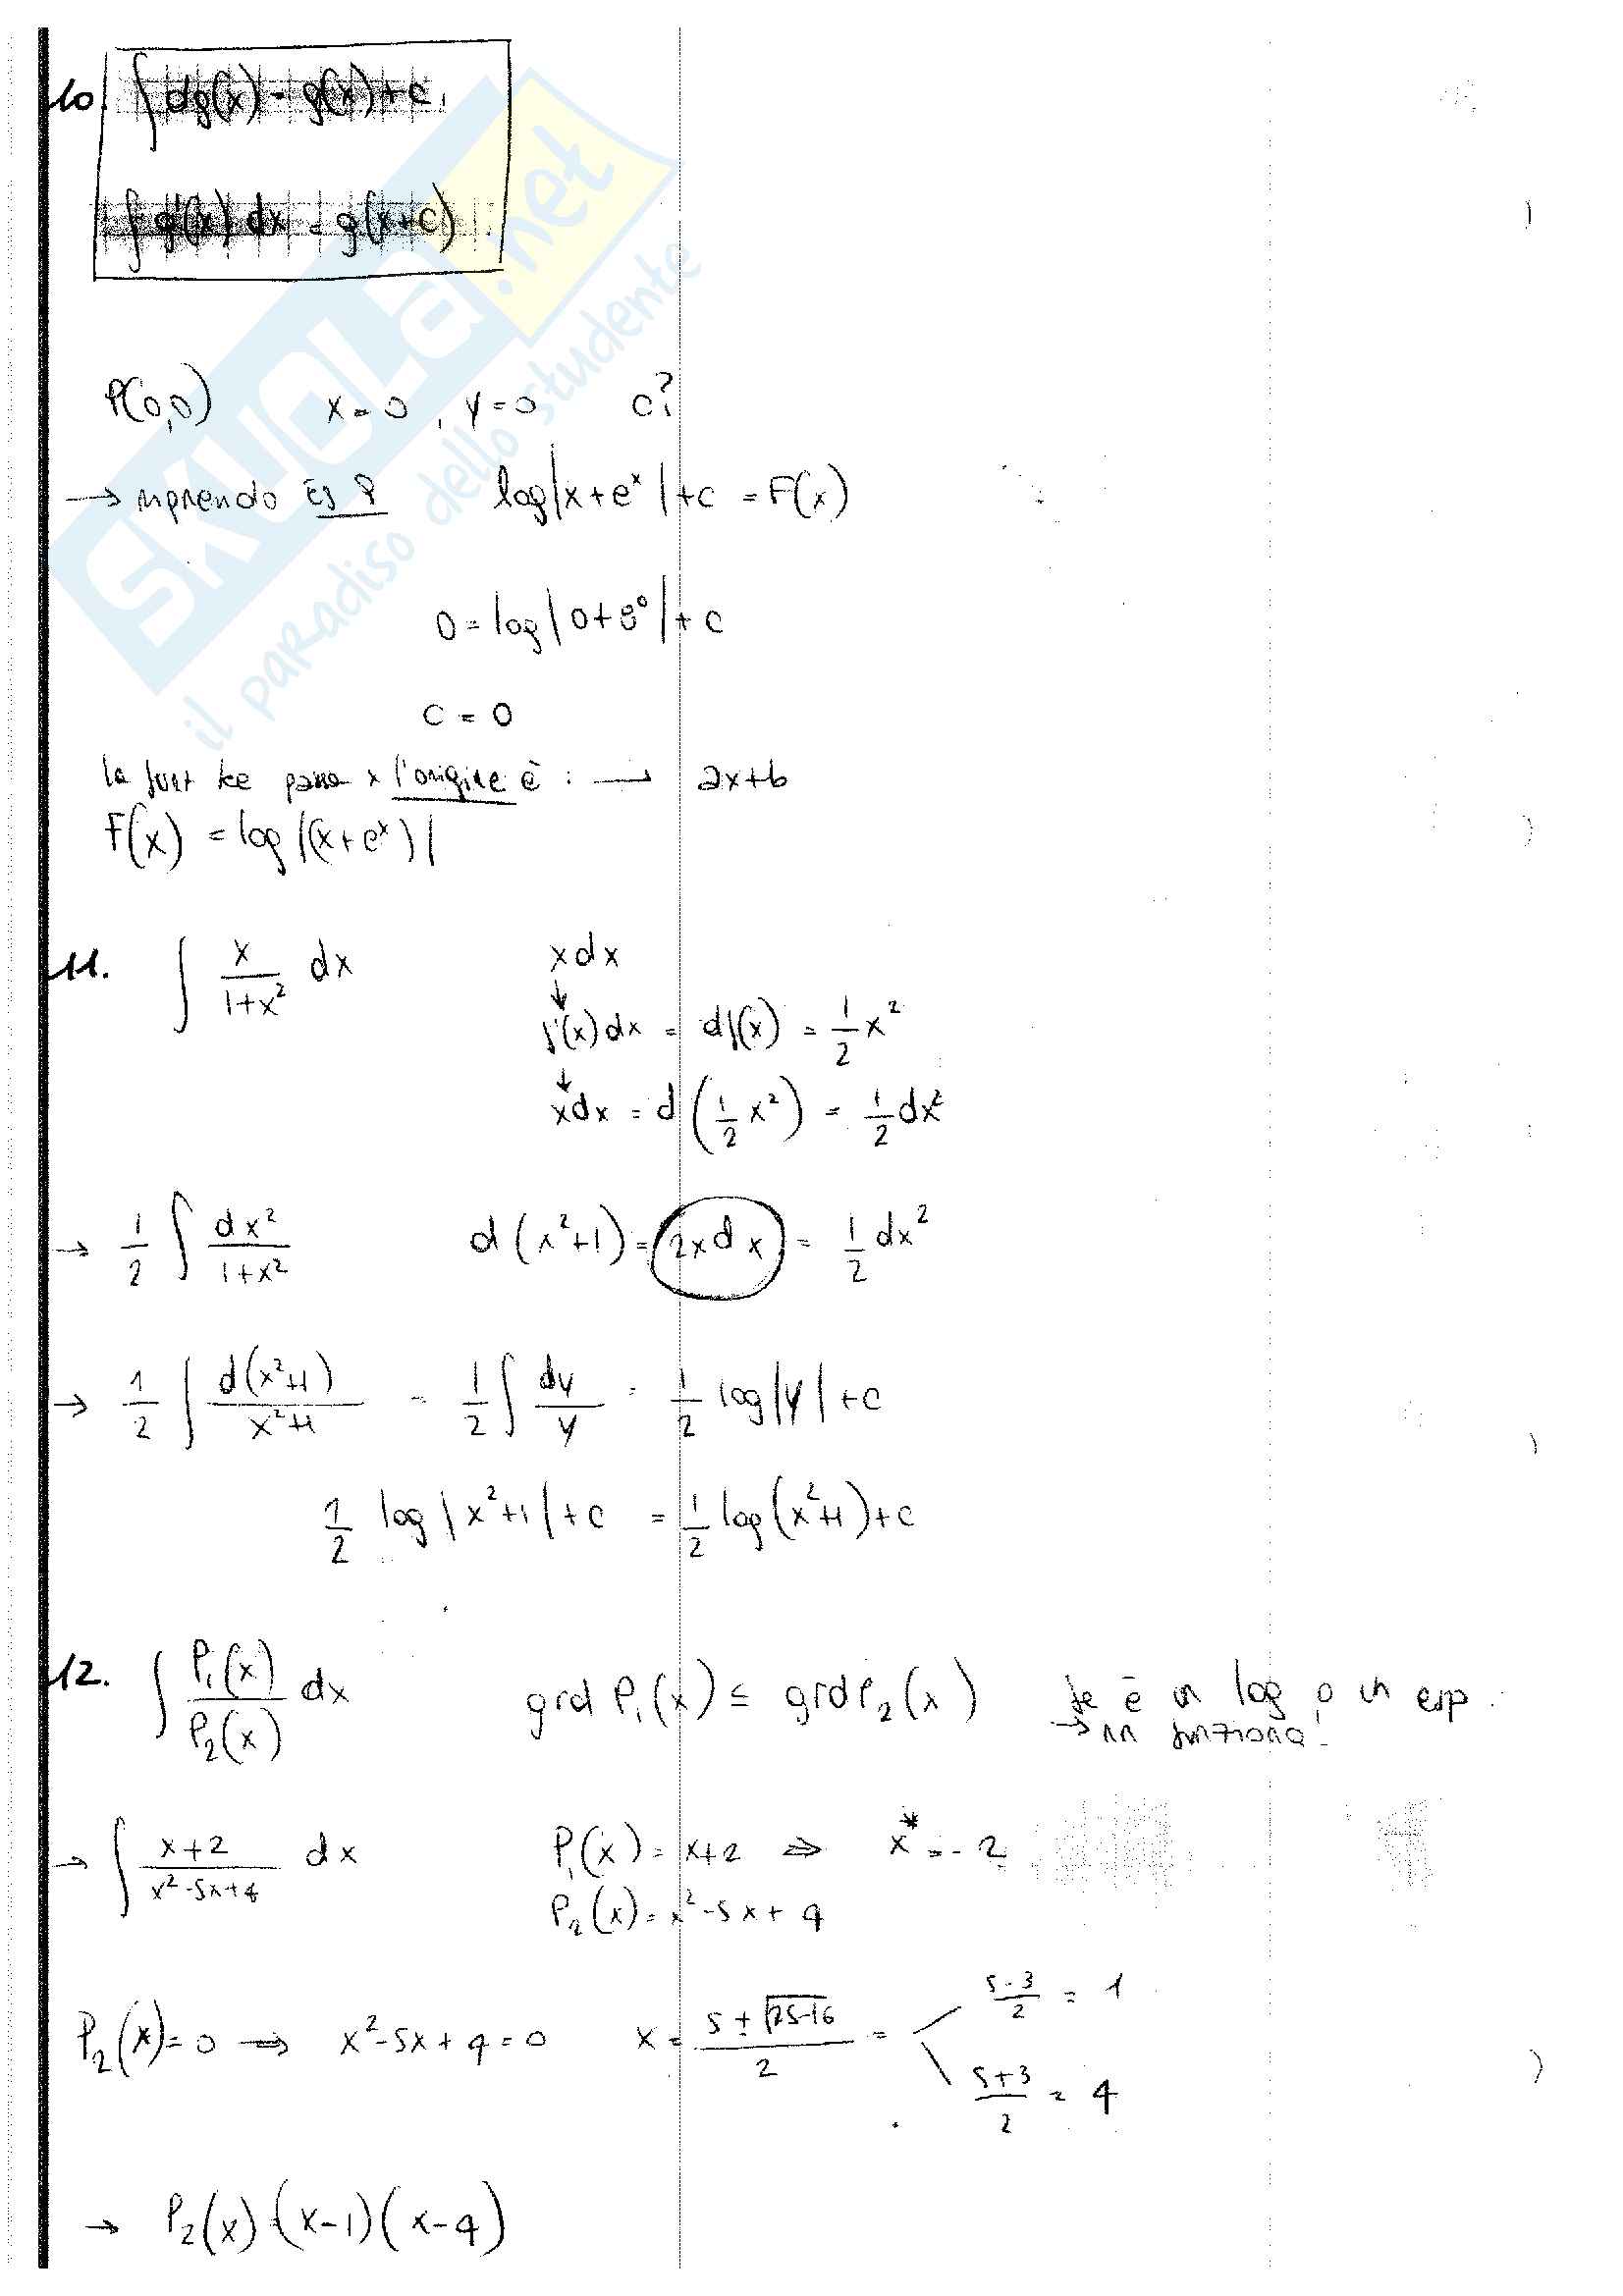 10. ∫ dg(x) = g(x)+c,
∫ g'(x) dx = g(x+c)
SKUOLa.net
il paradiso dello studente
P(0,0) x=0, y=0 c?
→ riprendo Es 9 log|x+e^x|+c = F(x)
0 = log|0+e^0|+c
c = 0
la funz ke passa x l'origine è : → ax+b
F(x) = log|(x+e^x)|
11. ∫ x/(1+x²) dx xdx
↓
f'(x)dx = df(x) = 1/2 x²
↓
xdx = d(1/2 x²) = 1/2 dx²
→ 1/2 ∫ dx²/(1+x²) d(x²+1) = 2xdx = 1/2 dx²
→ 1/2 ∫ d(x²+1)/(x²+1) = 1/2 ∫ dy/y = 1/2 log|y|+c
1/2 log|x²+1|+c = 1/2 log(x²+1)+c
12. ∫ P₁(x)/P₂(x) dx grd P₁(x) ≤ grd P₂(x) Se è un log o un esp.
→ nn funziona!
→ ∫ (x+2)/(x²-5x+4) dx P₁(x) = x+2 ⇒ x* = -2
P₂(x) = x²-5x+4
P₂(x)=0 ⇒ x²-5x+4=0 x = (5±√(25-16))/2 = (5-3)/2 = 1
(5+3)/2 = 4
→ P₂(x)=(x-1)(x-4)